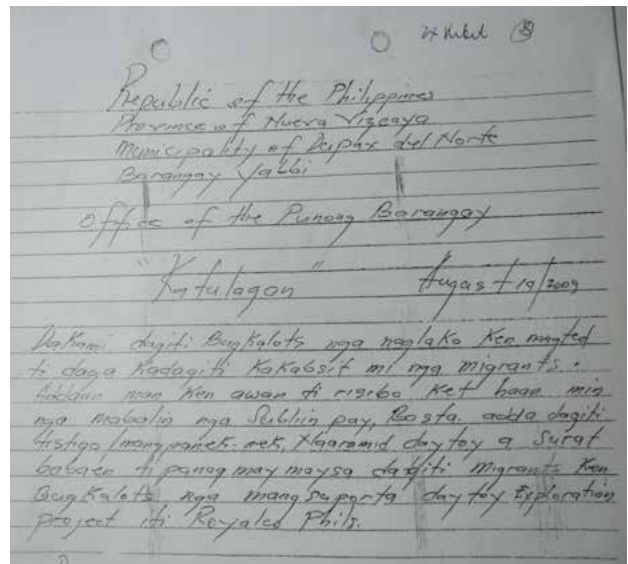 Republic of the Philippines
Province of Nueva Vizcaya
Municipality of Dupax del Norte
Barangay Yabbi
Office of the Punong Barangay
"Katulagan" August 19/2009
Dakami dagiti Bugkalots nga naglako Ken mangted
ti daga Kadagiti Kakabsit mi nga migrants.
Addaan man Ken awan ti risibo Ket haan min
nga mabalin nga Subliin pay, Basta adda dagiti
tistigo/mangpanek-nek, Naaramid daytoy a Surat
babaen ti panagmaymaysa dagiti migrants Ken
Bugkalots nga mangsuporta daytoy Exploration
project iti Royalco Phils.